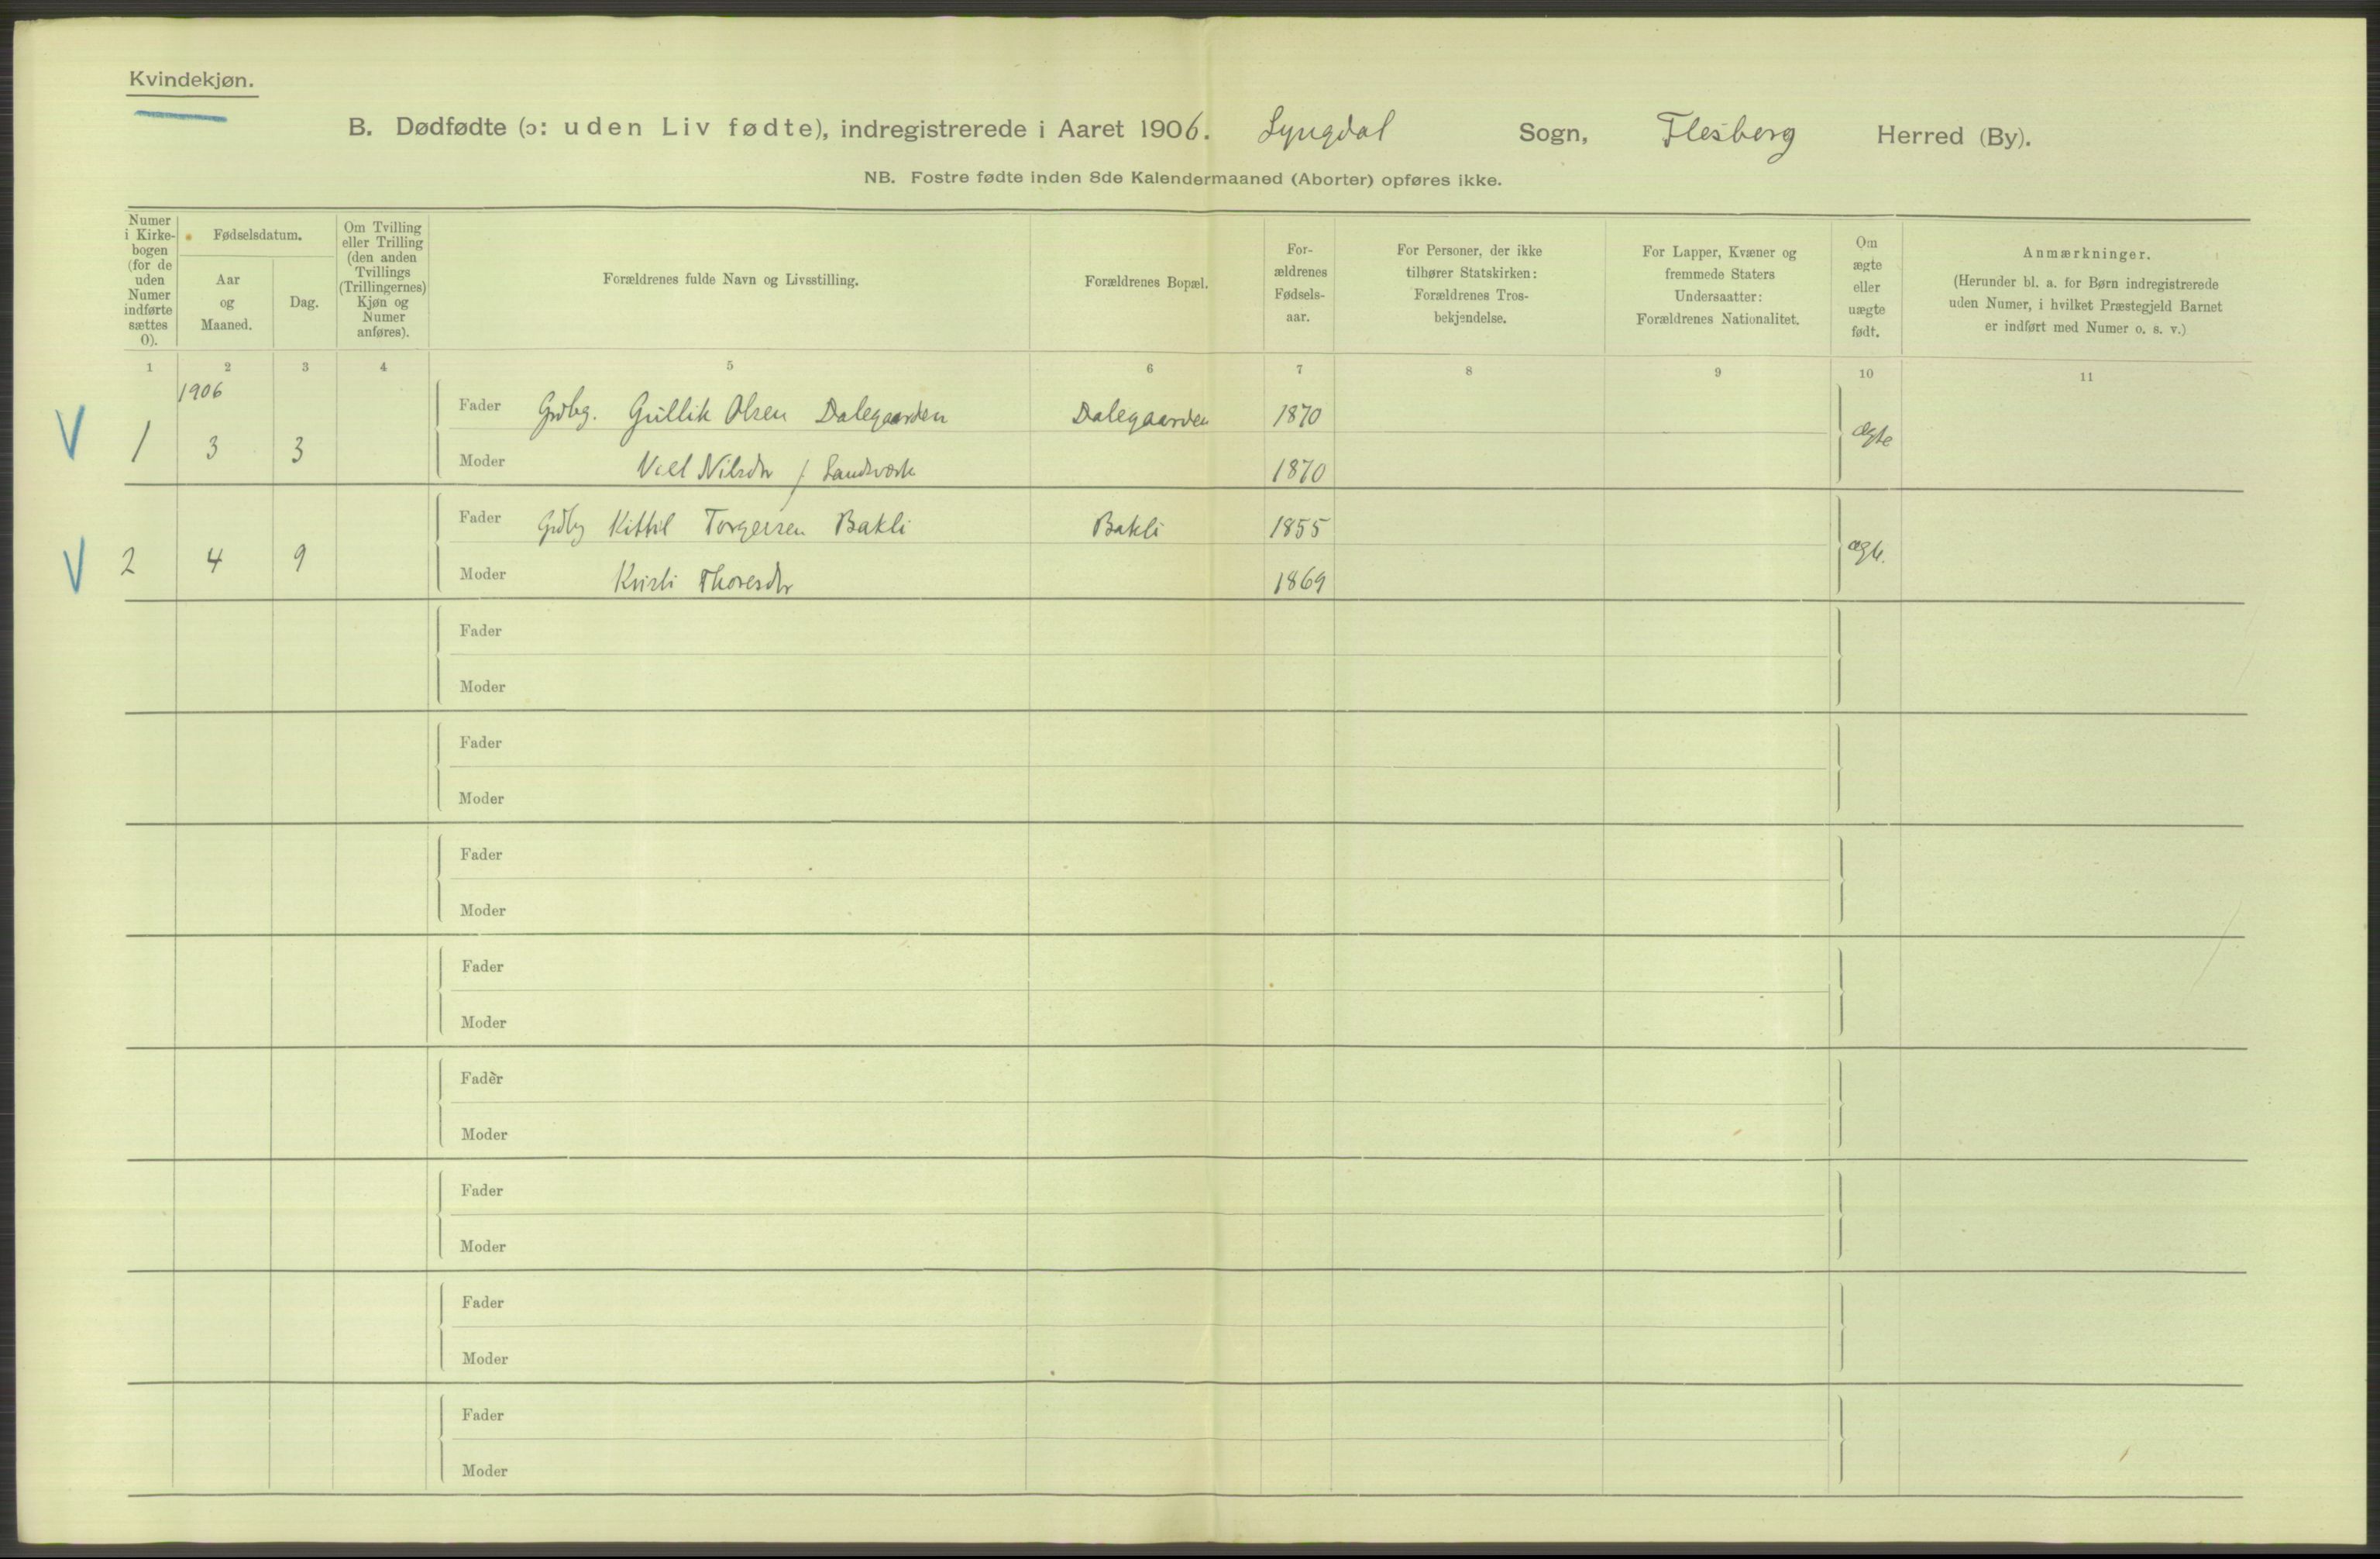 Kvindekjøn.
B. Dødfødte (ɔ: uden Liv fødte), indregistrerede i Aaret 1906. Lyngdal Sogn, Flesberg Herred (By).
NB. Fostre fødte inden 8de Kalendermaaned (Aborter) opføres ikke.
Numer
i Kirke-
bogen
(for de
uden
Numer
indførte
sættes
0).
Fødselsdatum.
Aar
og
Maaned.
Dag.
Om Tvilling
eller Trilling
(den anden
Tvillings
(Trillingernes)
Kjøn og
Numer
anføres).
Forældrenes fulde Navn og Livsstilling.
Forældrenes Bopæl.
For-
ældrenes
Fødsels-
aar.
For Personer, der ikke
tilhører Statskirken:
Forældrenes Tros-
bekjendelse.
For Lapper, Kvæner og
fremmede Staters
Undersaatter:
Forældrenes Nationalitet.
Om
ægte
eller
uægte
født.
Anmærkninger.
(Herunder bl. a. for Børn indregistrerede
uden Numer, i hvilket Præstegjeld Barnet
er indført med Numer o. s. v.)
1 2 3 4 5 6 7 8 9 10 11
1906
Fader Grdbg. Gullik Olsen Dalegaarden Dalegaarden 1870
V 1 3 3 ægte
Moder Nilsdr f. 1870
Fader Grdbg Kittil Torgersen Bakli Bakli 1855
V 2 4 9 ægte.
Moder Kristi Thoresdr 1869
Fader
Moder
Fader
Moder
Fader
Moder
Fader
Moder
Fader
Moder
Fader
Moder
Fader
Moder
Fader
Moder